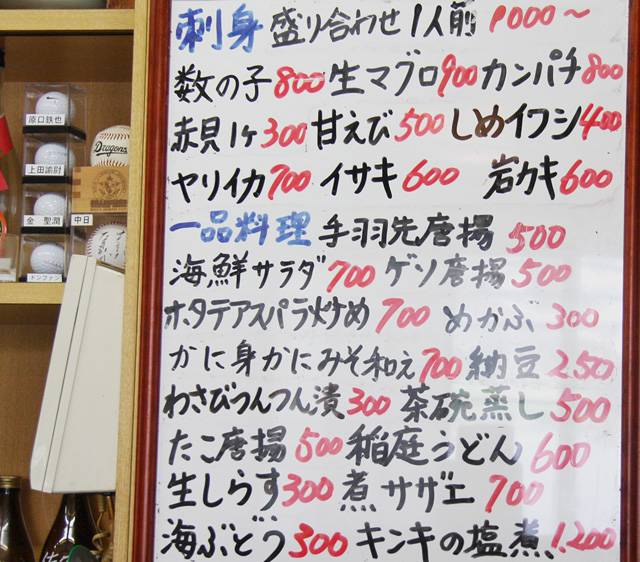 刺身 盛り合わせ 1人前 1000～
数の子 800 生マグロ 900 カンパチ 800
赤貝 1ヶ 300 甘えび 500 しめイワシ 400
ヤリイカ 700 イサキ 600 岩カキ 600
一品料理 手羽先唐揚 500
海鮮サラダ 700 ゲソ唐揚 500
ホタテアスパラ炒め 700 めかぶ 300
かに身かにみそ和え 700 納豆 250
わさびつんつん漬 300 茶碗蒸し 500
たこ唐揚 500 稲庭うどん 600
生しらす 300 煮サザエ 700
海ぶどう 300 キンキの塩煮 1.200
原口鉄也
Dragons
上田諭尉
金 聖潤
中日
ドンファン